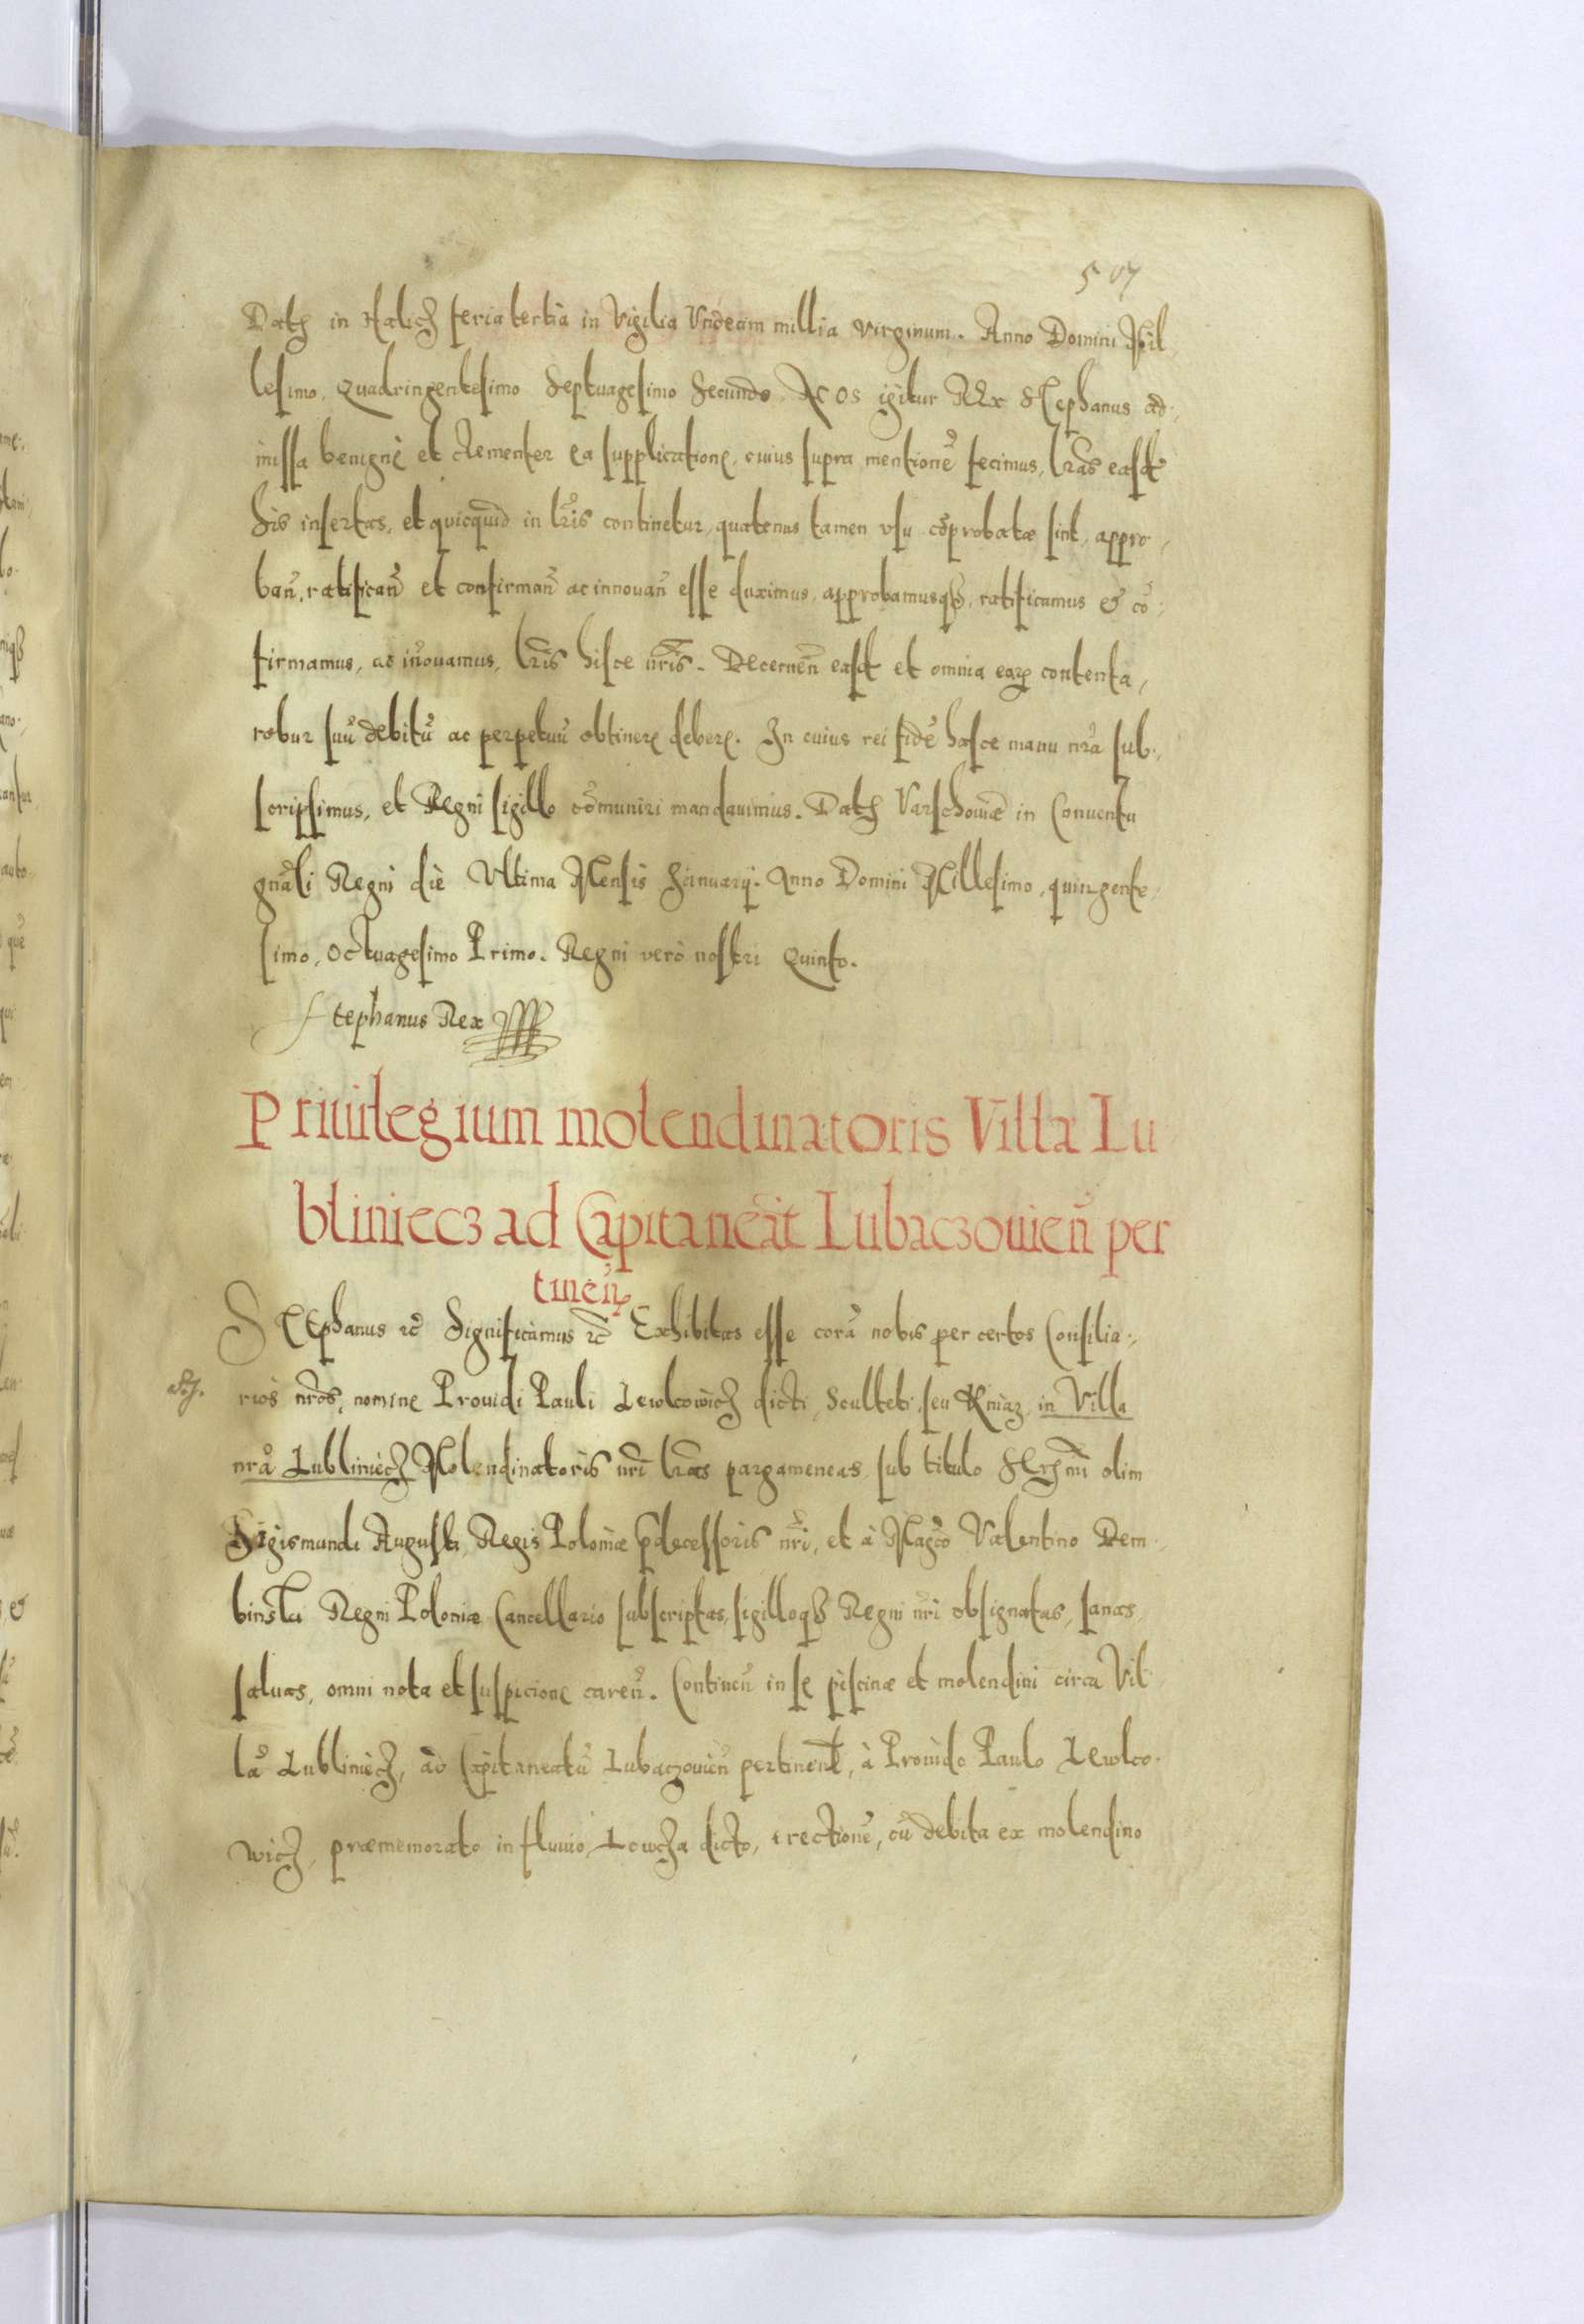 507
Datȝ in Halicȝ feria tertia in Vigilia Vndecim millia virginum. Anno Domini Mil,
lesimo, Quadringentesimo Septuagesimo Secundo. Nos igitur Rex Stephanus ad,
missa benignè et clementer ea supplicatione, cuius supra mentionē fecimus, lr̃as easdē
his insertas, et quicquid in lr̃is continetur, quatenus tamen vsu cōprobatæ sint, appro,
bañ, ratificañ et confirmañ ac innouañ esse duximus, approbamusqȝ, ratificamus & cō,
firmamus, ac iñouamus, lr̃is hisce nr̃is. Decerneñ easdē et omnia earȝ contenta,
robur suū debitū ac perpetuū obtinere debere. In cuius rei fidē hasce manu nr̃a sub,
scripsimus, et Regni sigillo cōmuniri mandauimus. Datȝ Varschowiæ in Conuentu
gnãli Regni die Vltima Mensis Januarij. Anno Domini Millesimo, quingente,
simo, Octuagesimo Primo. Regni verò nostri Quinto.
Stephanus Rex
Priuilegium molendinatoris Villæ Lu
bliniecz ad Capitaneāt Lubaczouieñ per
tineñ
Stephanus rc̃ Significamus rc̃ Exhibitas esse corā nobis per certos Consilia,
rios nr̃os, nomine Prouidi Pauli Lewkowicȝ dicti, Sculteti, seu Kniaz, in Villa
nr̃a Lubliniecȝ Molendinatoris nr̃i lr̃as pargameneas, sub titulo Serȝmi olim
Sigismundi Augusti, Regis Poloniæ p̃decessoris nr̃i, et à Magc̃o Valentino Dem,
binski Regni Poloniæ Cancellario subscriptas, sigilloqȝ Regni nr̃i obsignatas, sanas,
saluas, omni nota et suspicione careñ. Contineñ in se piscinæ et molendini circa Vil
lā Lubliniecȝ, ad Capitaneatū Lubaczouieñ pertinent̃, à Prouido Paulo Lewko,
wicȝ, præmemorato in fluuio, Lowcȝa dicto, erectionē, cū debita ex molendino